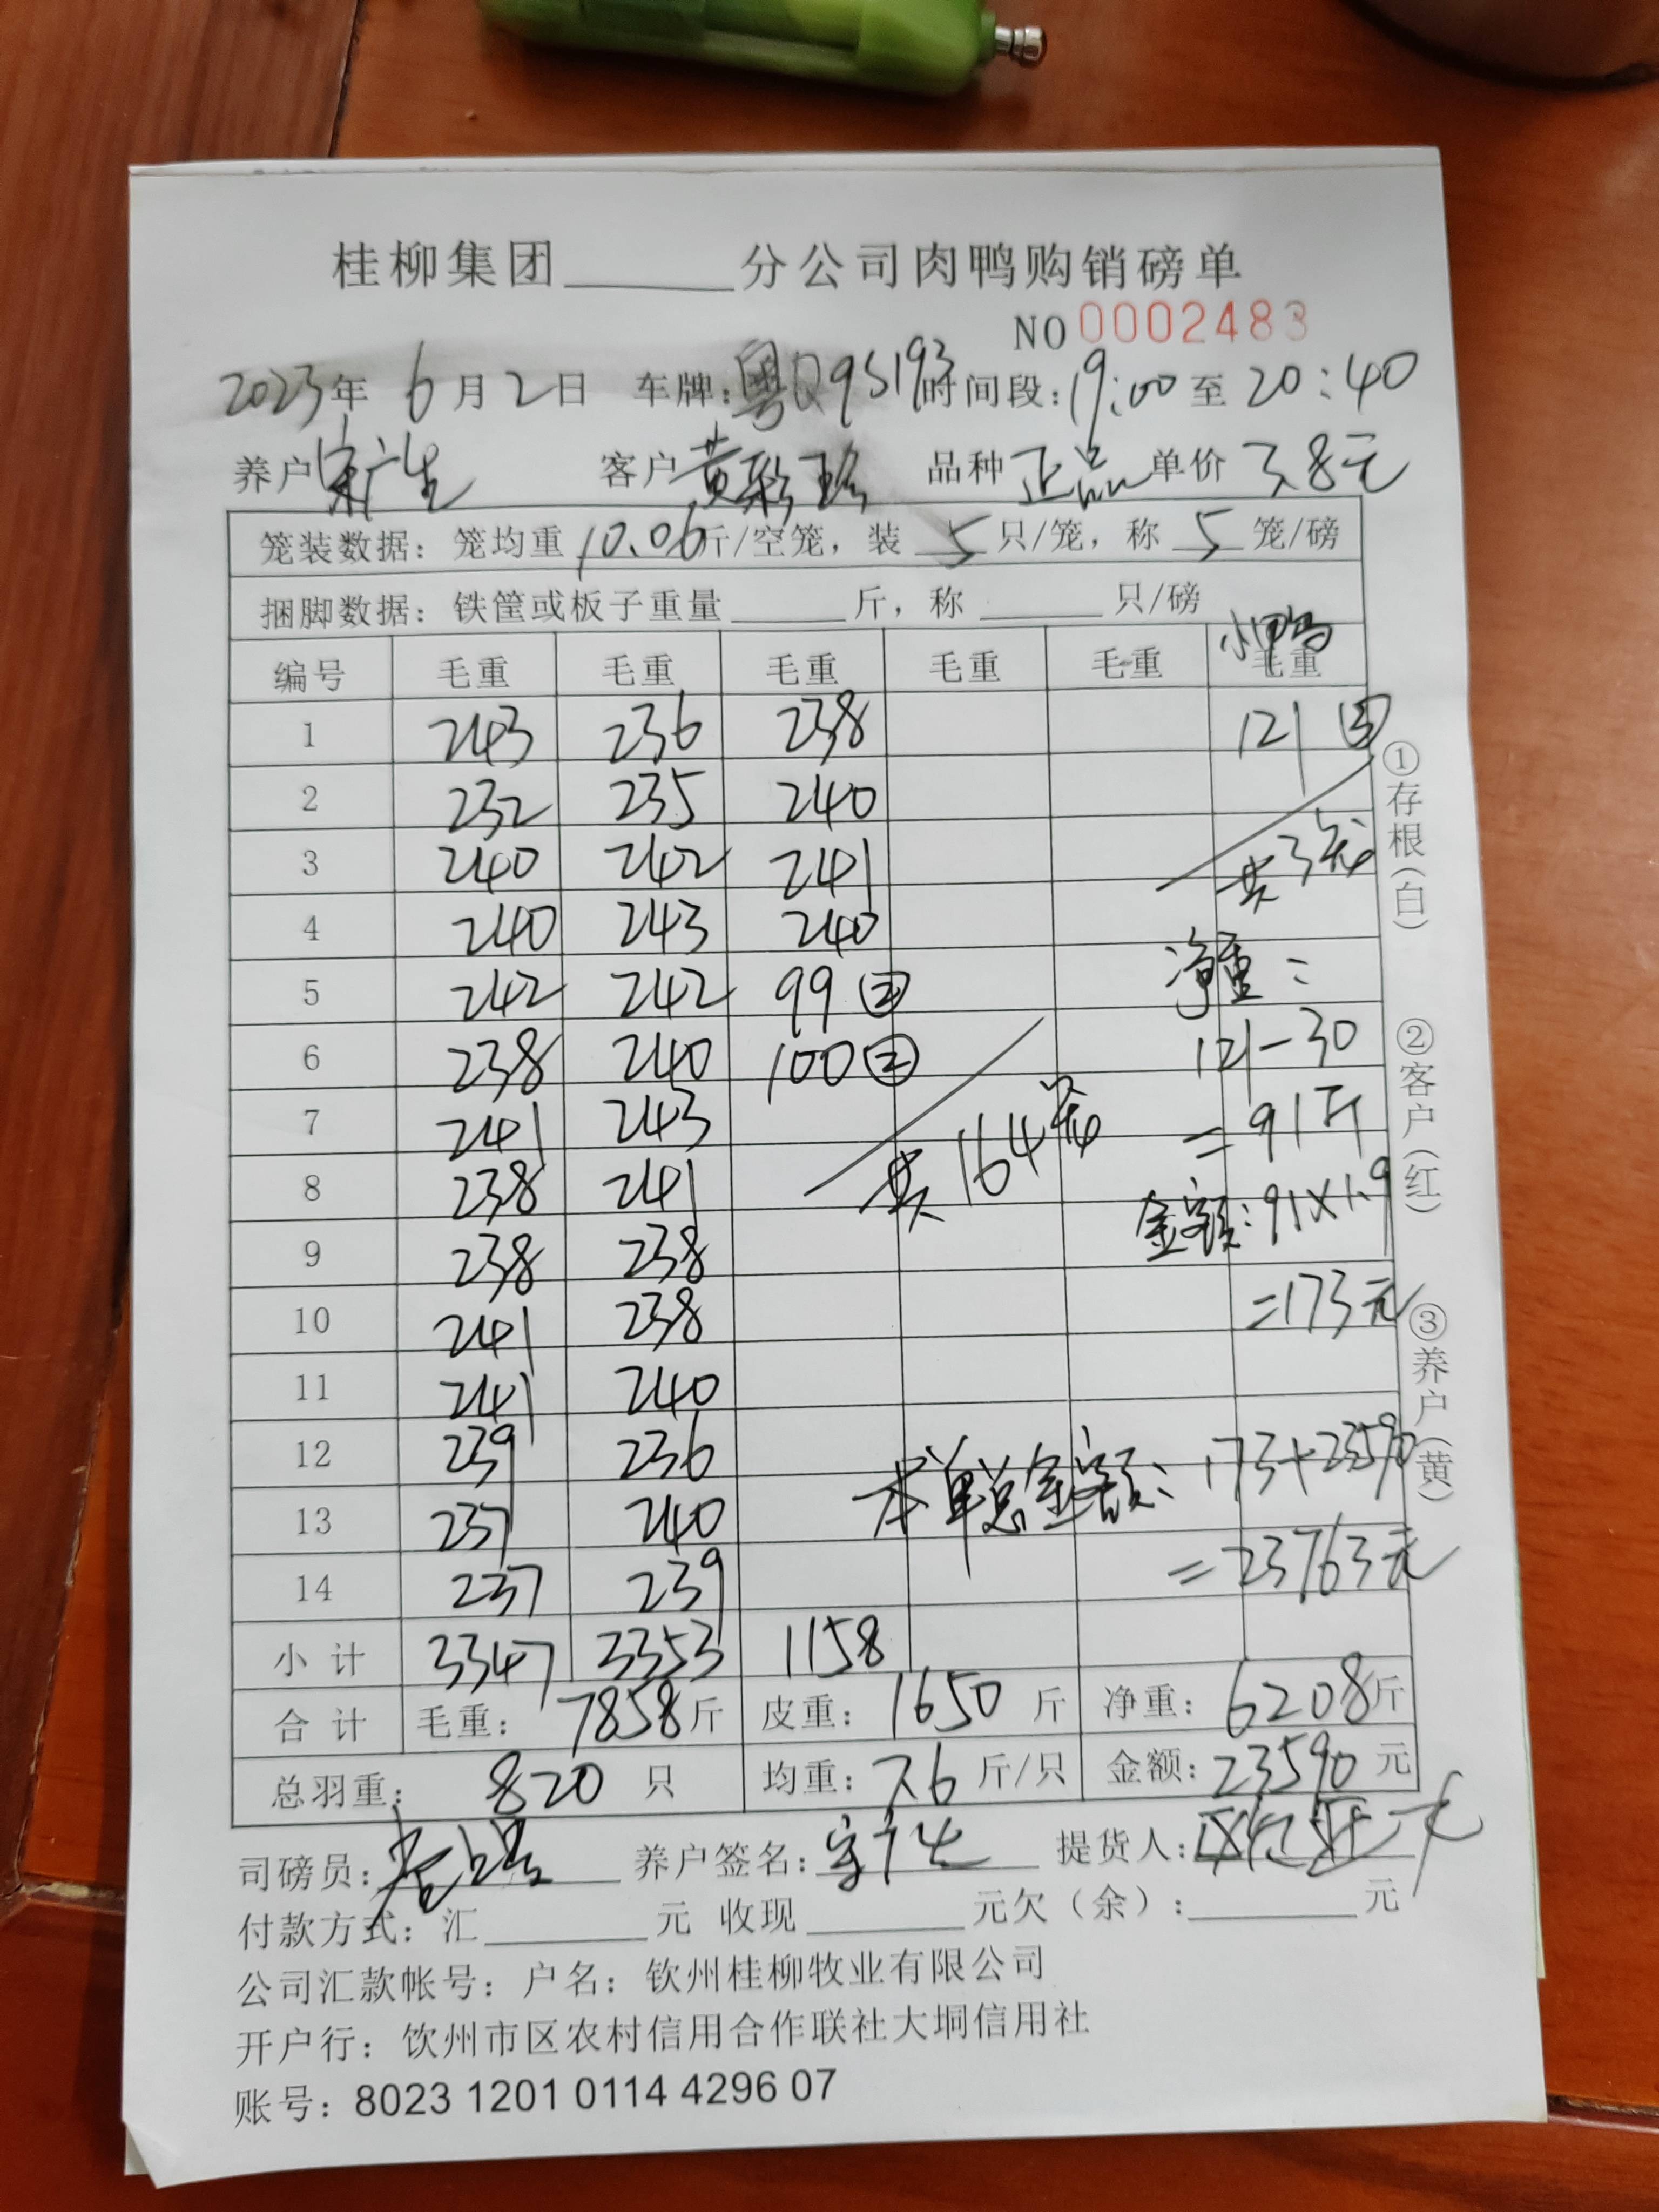 桂柳集团______分公司肉鸭购销磅单
NO 0002483
2023年 6月2日 车牌:粤Q9S193 时间段:19:00至20:40
养户 宋广生 客户 黄彩珍 品种 正品 单价 3.8元
笼装数据: 笼均重 10.06斤/空笼, 装 5 只/笼, 称 5 笼/磅
捆脚数据: 铁筐或板子重量______斤, 称______只/磅
小鸭
编号 毛重 毛重 毛重 毛重 毛重 毛重
1 243 236 238 121 ③
2 232 235 240
3 240 242 241 共3笼
4 240 243 240 净重=
5 242 242 99 ②
6 238 240 100 ② 121-30
7 241 243 =91斤
8 238 241 共164笼 金额:91×1.9
9 238 238
10 241 238 =173元
11 241 240
12 239 236 本单总金额:173+23590
13 237 240
14 237 239 =23763元
小计 3347 3353 1158
合计 毛重: 7858斤 皮重: 1650斤 净重: 6208斤
总羽重: 820 只 均重: 7.6 斤/只 金额: 23590 元
司磅员: 养户签名: 宋广生 提货人:
付款方式: 汇______元 收现______元欠(余):______元
公司汇款帐号: 户名: 钦州桂柳牧业有限公司
开户行: 钦州市区农村信用合作联社大垌信用社
账号: 8023 1201 0114 4296 07
①存根(白)
②客户(红)
③养户(黄)